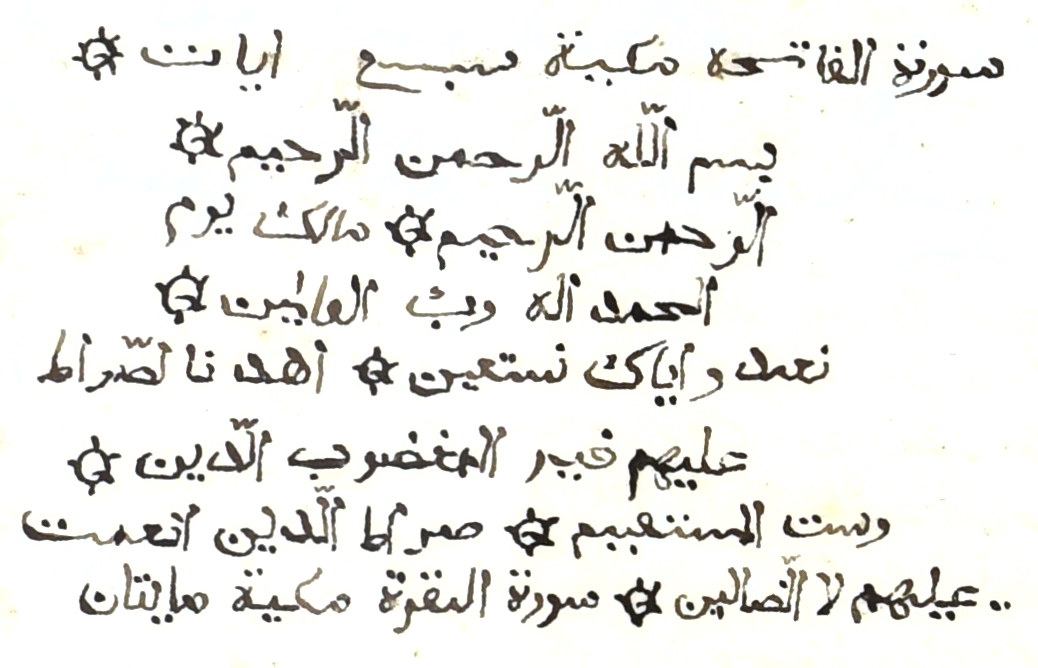 سورة الفاتحه مكية سبع ايات
بسم اللّه الرّحمن الرّحيم
الرّحمن الرّحيم مالك يوم
الحمد اله رب العالمين
نعبد و اياك نستعين اهد نا لصّراط
عليهم غير المغضوب الّدين
وست المستقيم صراط الّدين انعمت
عيلهم لا الّضالين سورة البقرة مكية مايتان